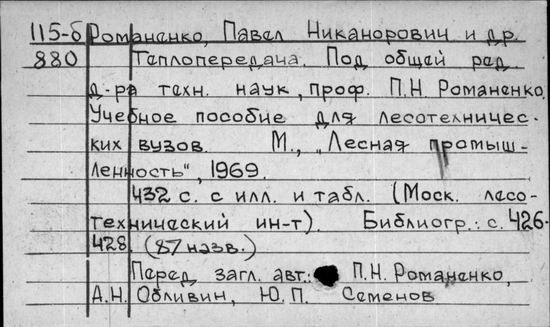 115-б Романенко, Павел Никанорович и др.
880 Теплопередача. Под общей ред.
д-ра техн. наук, проф. П.Н. Романенко.
Учебное пособие для лесотехничес-
ких вузов. М., „Лесная промыш-
ленность", 1969.
432 с. с илл. и табл. (Моск. лесо-
технический ин-т). Библиогр.: с. 426-
428 (87 назв.)
Перед загл. авт.: П.Н. Романенко,
А.Н. Обливин, Ю.П. Семенов